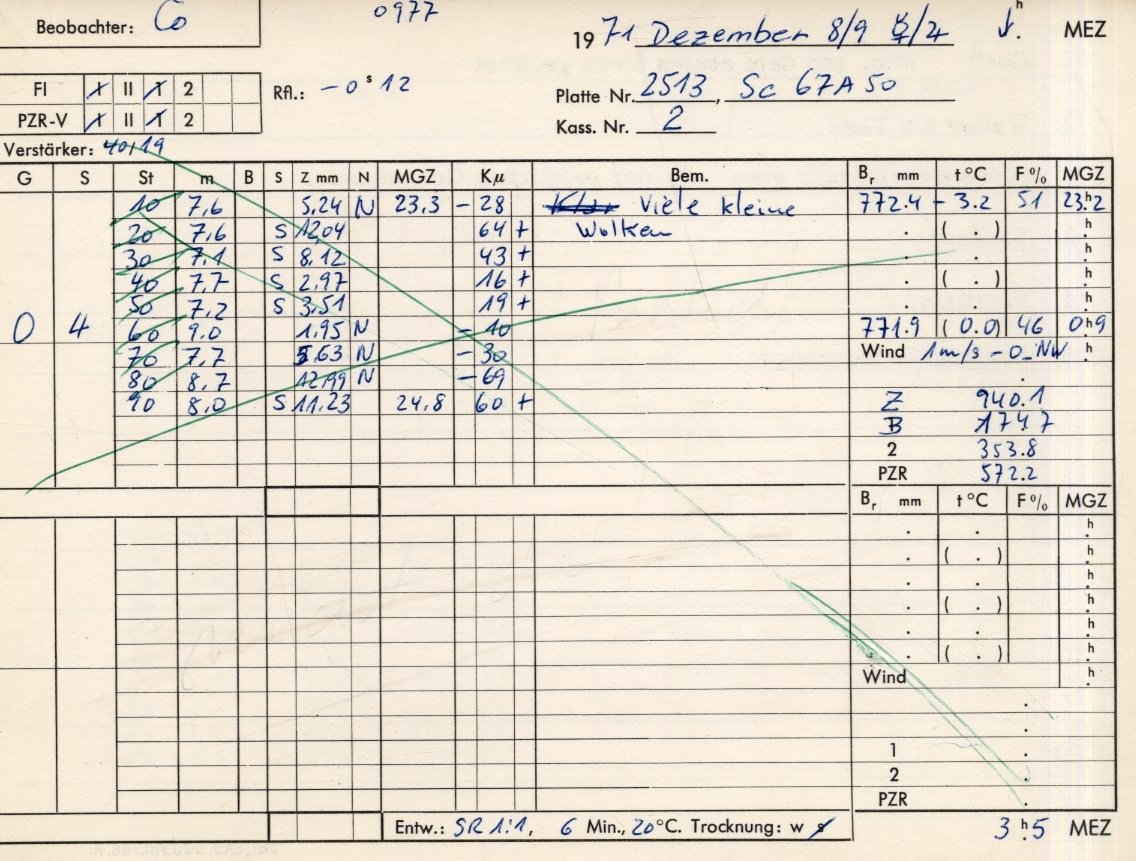 Beobachter: Co
0977
1971 Dezember 8/9 /4 h . MEZ
FI I II 1 2
Rfl.: -0ˢ12
Platte Nr. 2513, Sc 67A50
PZR-V I II 1 2
Kass. Nr. 2
Verstärker: 40/19
G S St m B S Z mm N MGZ Kμ Bem. Bᵣ mm t °C F % MGZ
10 7,6 5,24 N 23,3 -28 Klar Viele kleine 772.4 -3.2 51 23ʰ2
20 7,6 S 12,04 64 + Wolken . ( . ) h
30 7,1 S 8,12 43 + . h
40 7,7 S 2,97 16 + ( . ) h
50 7,2 S 3,51 19 + h
0 4 60 9.0 1,95 N -10 771.9 (0.0) 46 0ʰ9
70 7,7 5,63 N -30 Wind 1m/s - O_NW h
80 8,7 12,99 N -69
90 8,0 S 11,23 24,8 60 + Z 940.1
B 174.7
2 353.8
PZR 572.2
Bᵣ mm t °C F % MGZ
. . h
. ( . ) h
. . h
. ( . ) h
. . h
. ( . ) h
Wind h
.
.
1 .
2 .
PZR .
Entw.: SR 1:1, 6 Min., 20°C. Trocknung: w s 3ʰ.5 MEZ